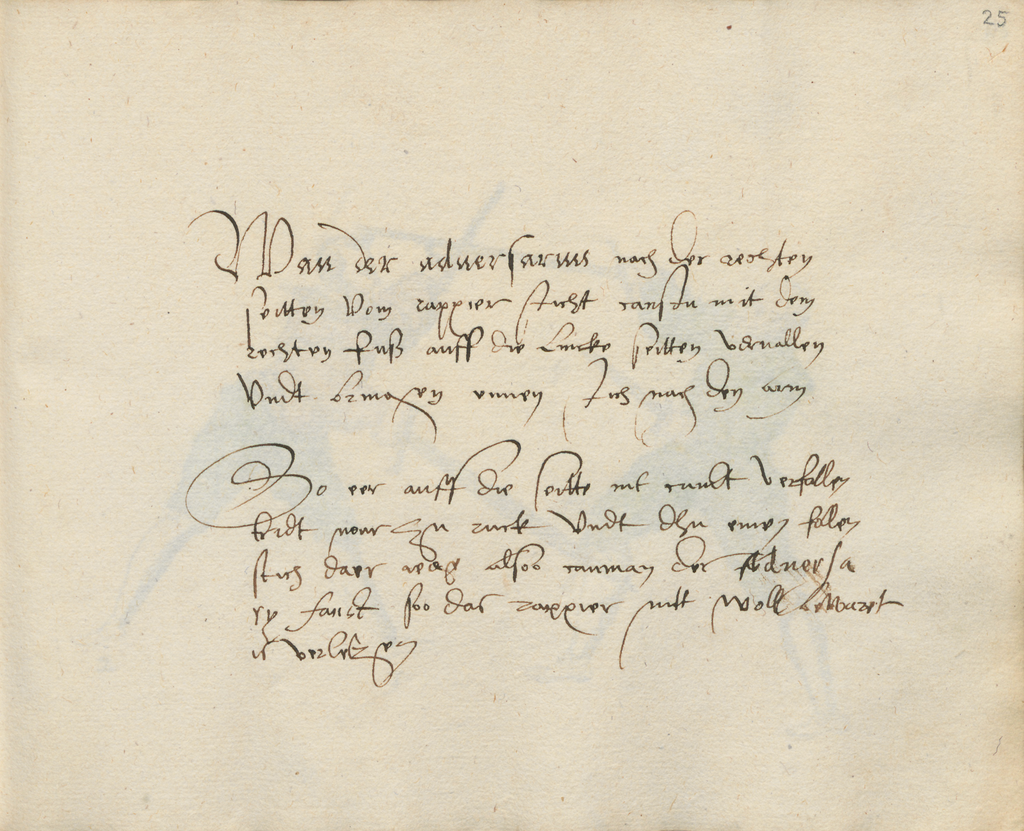 25
Wan der adversarius nach der rechten
seitten vom rappier sticht canstu mit dem
rechten fuß auff die lincke seitten veruallen
Vndt einen stich nach den arm
So eer auff die seitte nit canst verfallen
tridt nour zu ruck Vndt einen
stich daer alsoo canman der Adversa
ry faust soo das rappier nitt woll bewaret
is verletzen